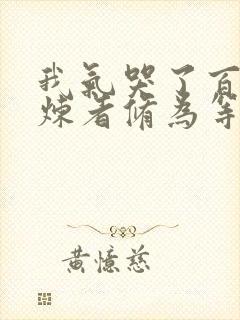 我氣哭了百
煉者脩為等
黃憶慈